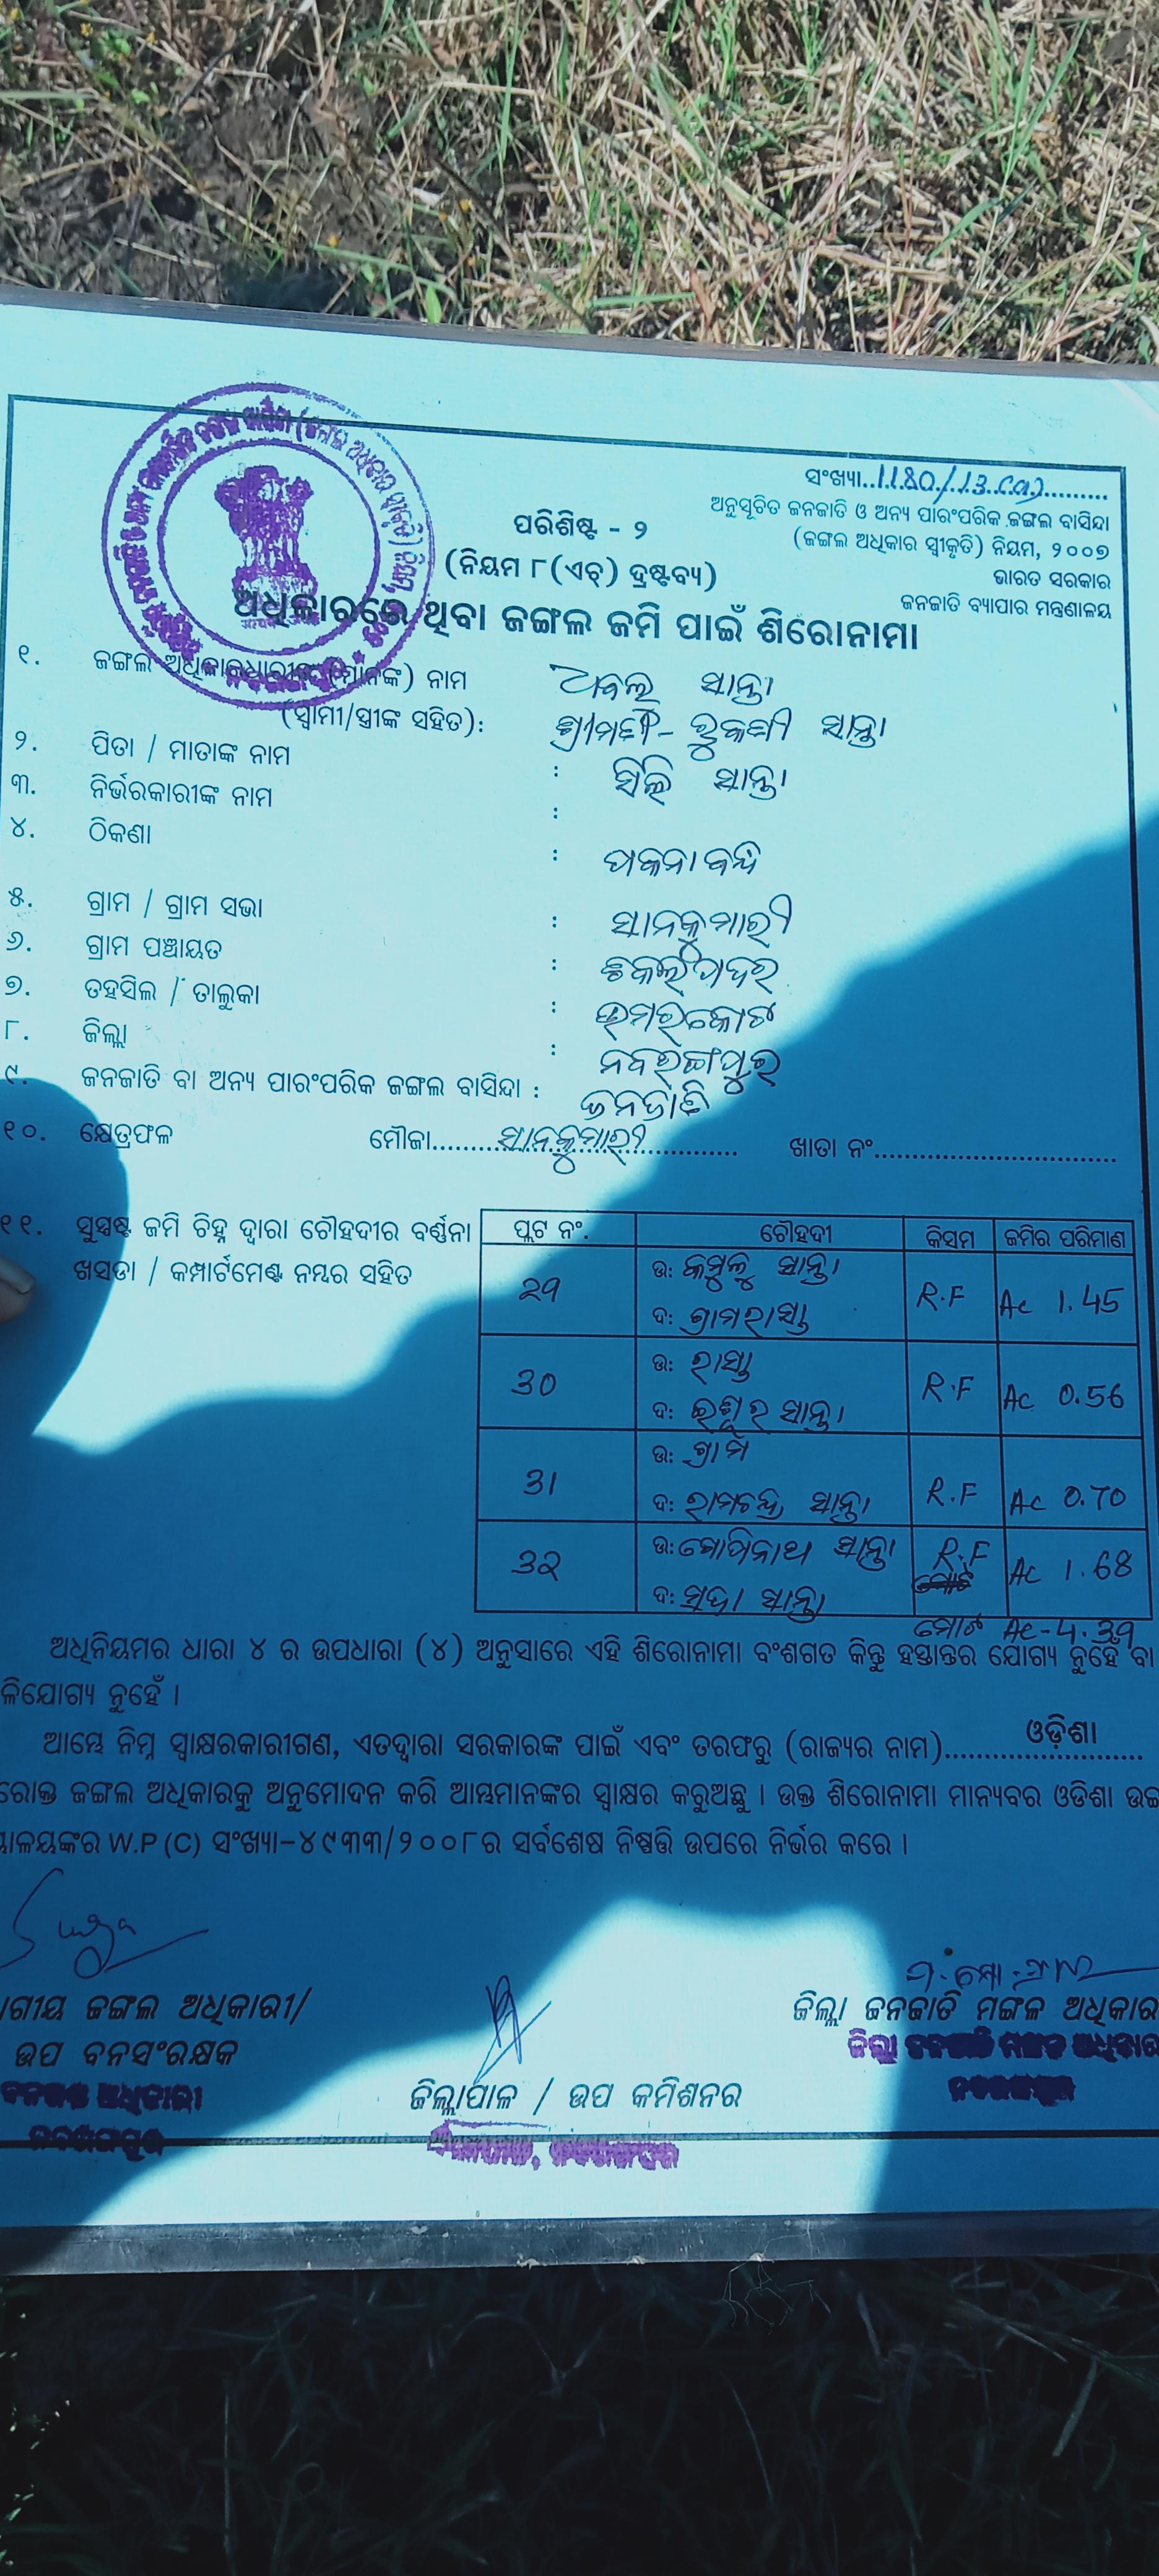 ସଂଖ୍ୟା..1180/13(a)
ଅନୁସୂଚିତ ଜନଜାତି ଓ ଅନ୍ୟ ପାରଂପରିକ ଜଙ୍ଗଲ ବାସିନ୍ଦା
(ଜଙ୍ଗଲ ଅଧିକାର ସ୍ୱୀକୃତି) ନିୟମ, ୨୦୦୭
ଭାରତ ସରକାର
ଜନଜାତି ବ୍ୟାପାର ମନ୍ତ୍ରଣାଳୟ
ପରିଶିଷ୍ଟ - ୨
(ନିୟମ ୮(ଏଚ୍) ଦ୍ରଷ୍ଟବ୍ୟ)
ଅଧିକାରରେ ଥିବା ଜଙ୍ଗଲ ଜମି ପାଇଁ ଶିରୋନାମା
୧. ଜଙ୍ଗଲ ଅଧିକାରଧାରୀଙ୍କ (ମାନଙ୍କ) ନାମ ଅବଲୁ ସାନ୍ତା
(ସ୍ୱାମୀ/ସ୍ତ୍ରୀଙ୍କ ସହିତ): ଶ୍ରୀମତୀ- ରୁକଣୀ ସାନ୍ତା
୨. ପିତା / ମାତାଙ୍କ ନାମ : ସିଲି ସାନ୍ତା
୩. ନିର୍ଭରକାରୀଙ୍କ ନାମ :
୪. ଠିକଣା : ପକନା ବନ୍ଦି
୫. ଗ୍ରାମ / ଗ୍ରାମ ସଭା : ସାନକୁମାରୀ
୬. ଗ୍ରାମ ପଞ୍ଚାୟତ : ଚକଲପଦର
୭. ତହସିଲ / ତାଲୁକା : ଉମରକୋଟ
୮. ଜିଲ୍ଲା : ନବରଙ୍ଗପୁର
୯. ଜନଜାତି ବା ଅନ୍ୟ ପାରଂପରିକ ଜଙ୍ଗଲ ବାସିନ୍ଦା : ଜନଜାତି
୧୦. କ୍ଷେତ୍ରଫଳ ମୌଜା........ସାନକୁମାରୀ........ ଖାତା ନଂ................
୧୧. ସୁସ୍ପଷ୍ଟ ଜମି ଚିହ୍ନ ଦ୍ୱାରା ଚୌହଦୀର ବର୍ଣ୍ଣନା
ଖସଡା / କମ୍ପାର୍ଟମେଣ୍ଟ ନମ୍ବର ସହିତ
ପ୍ଲଟ ନଂ. ଚୌହଦୀ କିସମ ଜମିର ପରିମାଣ
29 ଉ: କମ୍ବୁଳୁ ସାନ୍ତା R.F Ac 1.45
ଦ: ଗ୍ରାମରାସ୍ତା
30 ଉ: ରାସ୍ତା R.F Ac 0.56
ଦ: ଇଶ୍ୱର ସାନ୍ତା
31 ଉ: ଗ୍ରାମ R.F Ac 0.70
ଦ: ରାମଚନ୍ଦ୍ର ସାନ୍ତା
32 ଉ: ଗୋପିନାଥ ସାନ୍ତା R.F Ac 1.68
ଦ: ସଦା ସାନ୍ତା
ମୋଟ Ac-4.39
ଅଧିନିୟମର ଧାରା ୪ ର ଉପଧାରା (୪) ଅନୁସାରେ ଏହି ଶିରୋନାମା ବଂଶଗତ କିନ୍ତୁ ହସ୍ତାନ୍ତର ଯୋଗ୍ୟ ନୁହେଁ ବା
ଳିଯୋଗ୍ୟ ନୁହେଁ ।
ଆମ୍ଭେ ନିମ୍ନ ସ୍ୱାକ୍ଷରକାରୀଗଣ, ଏତଦ୍ୱାରା ସରକାରଙ୍କ ପାଇଁ ଏବଂ ତରଫରୁ (ରାଜ୍ୟର ନାମ)........ଓଡ଼ିଶା........
ରୋକ୍ତ ଜଙ୍ଗଲ ଅଧିକାରକୁ ଅନୁମୋଦନ କରି ଆମ୍ଭମାନଙ୍କର ସ୍ୱାକ୍ଷର କରୁଅଛୁ । ଉକ୍ତ ଶିରୋନାମା ମାନ୍ୟବର ଓଡିଶା ଉଚ୍ଚ
ୟାଳୟଙ୍କର W.P (C) ସଂଖ୍ୟା-୪୯୩୩/୨୦୦୮ର ସର୍ବଶେଷ ନିଷ୍ପତ୍ତି ଉପରେ ନିର୍ଭର କରେ ।
ାଗୀୟ ଜଙ୍ଗଲ ଅଧିକାରୀ/
ଉପ ବନସଂରକ୍ଷକ
ଜିଲ୍ଲାପାଳ / ଉପ କମିଶନର
ଜିଲ୍ଲା ଜନଜାତି ମଙ୍ଗଳ ଅଧିକାର
ଜିଲ୍ଲା ଜନଜାତି ମଙ୍ଗଳ ଅଧିକାର